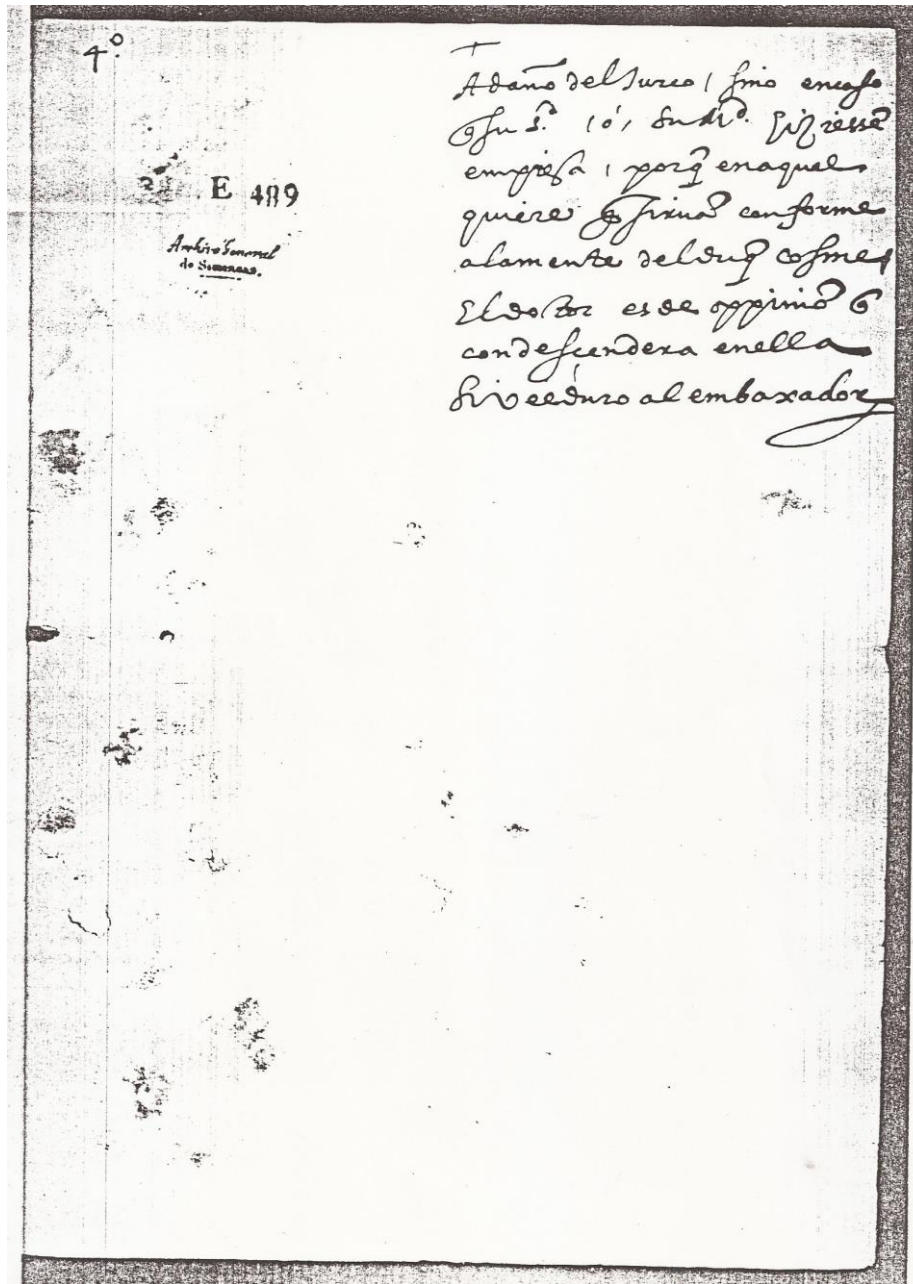 4º
E 489
Archivo General
de Simancas.
+
A daño del turco / sino en caso
q̃ su S.ª / ó / su M.d hiziessẽ
empresa / porq̃ en aquel
quiere q̃ siruã conforme
a la mente del duq̃ cosme /
El doctor es de oppiniõ q̃
condescendera en ella
si vee duro al embaxador